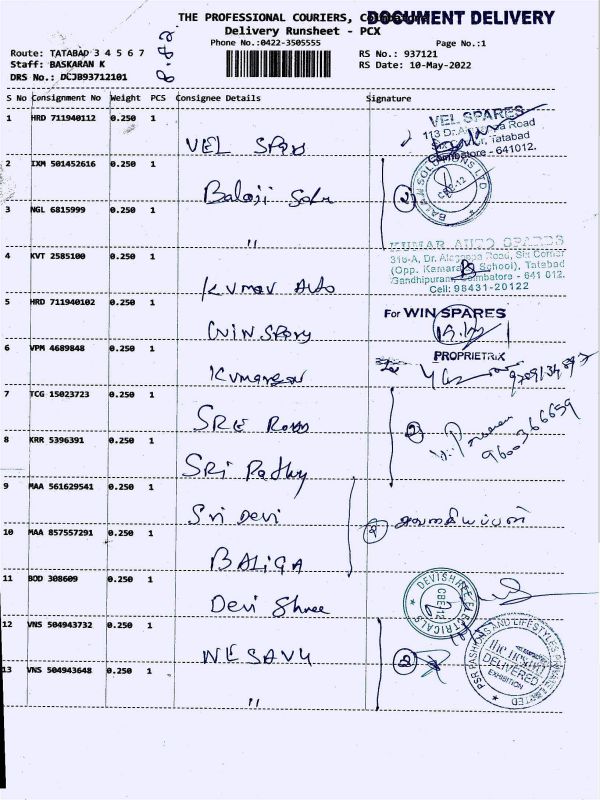 THE PROFESSIONAL COURIERS, Coimbatore
DOCUMENT DELIVERY
Delivery Runsheet - PCX
Phone No.:0422-3505555
Page No.:1
Route: TATABAD 3 4 5 6 7
RS No.: 937121
Staff: BASKARAN K
RS Date: 10-May-2022
DRS No.: DCJB93712101
S No Consignment No Weight PCS Consignee Details Signature
1 HRD 711940112 0.250 1 VEL Spares
VEL SPARES
113 Dr. Road
Tatabad
Coimbatore - 641012.
2 IXM 501452616 0.250 1 Balaji Soln
2
BALAJI SOLUTIONS LTD
CBE-12
3 NGL 6815999 0.250 1 "
KUMAR AUTO SPARES
316-A, Dr. Alagappa Road, Six Corner
(Opp. Kamaraj School), Tatabad
Gandhipuram, Coimbatore - 641 012.
Cell: 98431-20122
4 KVT 2585100 0.250 1 Kumar Auto
5 HRD 711940102 0.250 1 Win Spares
For WIN SPARES
PROPRIETRIX
6 VPM 4689848 0.250 1 Kumaresan
7 TCG 15023723 0.250 1 SRE
2
9600366659
8 KRR 5396391 0.250 1 SRi
9 MAA 561629541 0.250 1 Sri Devi
2
10 MAA 857557291 0.250 1 BALIGA
11 BOD 308609 0.250 1 Devi Shree
DEVISHREE ELECTRICALS
CBE-12
12 VNS 504943732 0.250 1 NESAVU
2
PSR FASHIONS AND LIFESTYLES PRIVATE LIMITED
DELIVERED
EXHIBITION
13 VNS 504943648 0.250 1 "